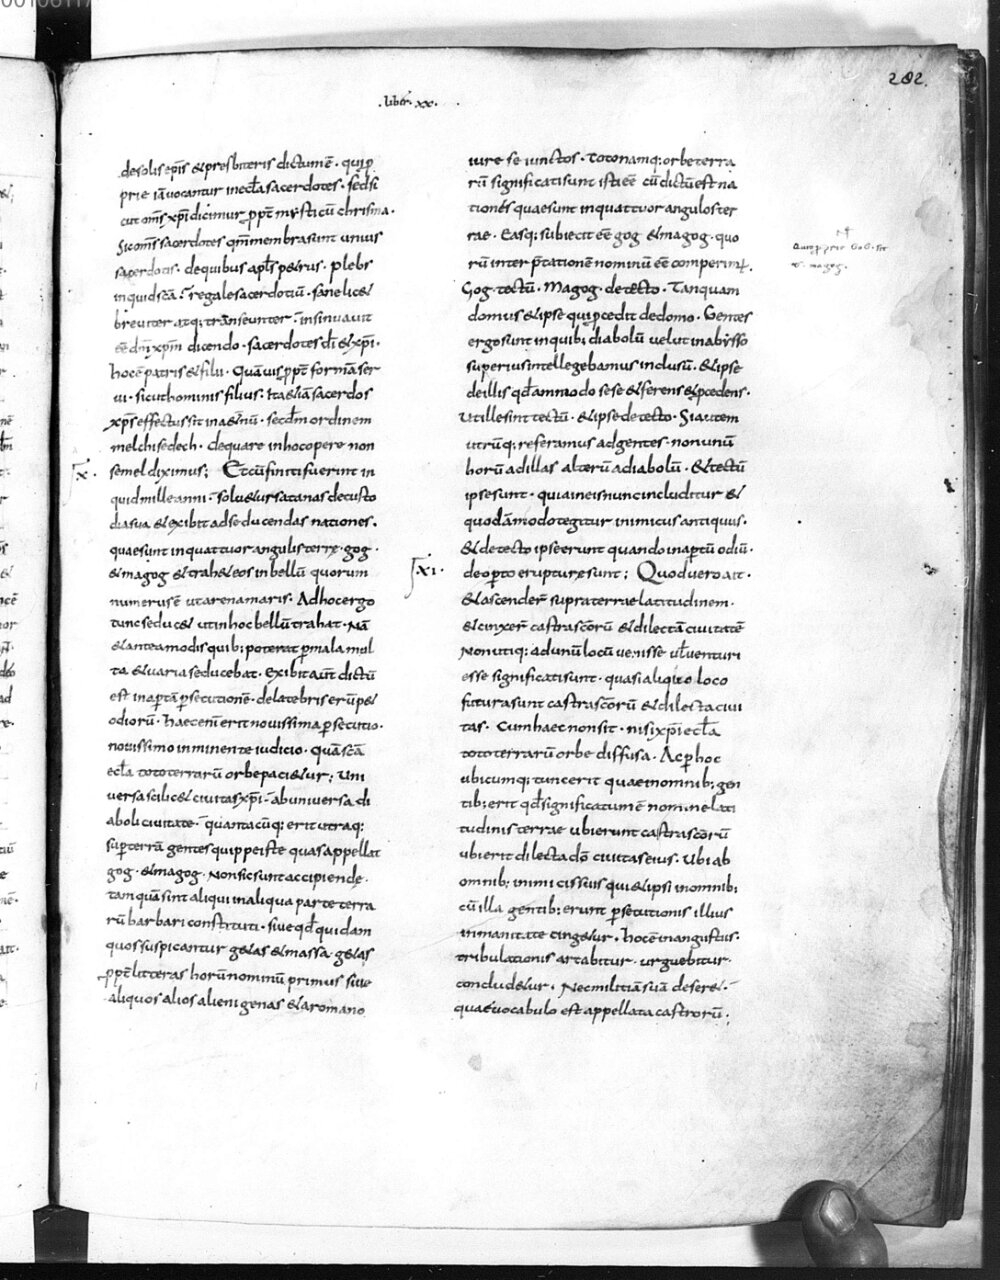 282.
.liber.xx.
desolis ep̄is & presbiteris dictum ē. qui p̱
prie iā vocantur in eccl̄a sacerdotes. sed si
cut om̄s xp̄i dicimur ꝓpt̄ mysticū chrisma.
Sic om̄s sacerdotes qm̄ membra sunt unius
sacerdotis. de quibus apl̄s petrus. plebs
inquid sc̄a. regale sacerdotiū. sane lic&
breviter atq; transeunter. insinuavit
eē dm̄ xp̄m dicendo. sacerdotes dī & xp̄i.
hoc ē patris & filii. Quāvis ꝓpt̄ formā ser
vi. sicut hominis filius. ita & iā sacerdos
xp̄s effectus sit in a&nū. secdm̄ ordinem
melchisedech. de qua re in hoc opere non
.x. semel diximus; Et cū finiti fuerint in
quid mille anni. solu&ur satanas de custo
dia sua & exibit ad seducendas nationes.
quae sunt in quattuor angulis terrę. gog.
& magog & trah& eos in bellū quorum
numerus ē ut arena maris. Ad hoc ergo
tunc seduc& ut in hoc bellū trahat. Nā
& antea modis quib; poterat ꝑ mala mul
ta & varia seducebat. Exibit aut̄ dictū
est in aptā ꝑsecutionē. de latebris erūp&
odiorū. haec enī erit novissima ꝑsecutio.
novissimo inminente iudicio. quā sc̄a
eccl̄a toto terrarū orbe paci&ur; Uni
versa scilic& civitas xp̄i. ab universa di
aboli civitate. quantacūq; erit utraq;
sup terrā gentes quippe iste quas appellat
gog. & magog. Non sic sunt accipiendę.
tamquā sint aliqui in aliqua parte terra
rū barbari constituti. sive qđ quidam
quos suspicantur g&as & massag&as
ꝓpt̄ litteras horū nominū primus sive
aliquos alios alienigenas & a romano
iure seiunctos. Toto namq; orbe terra
rū significati sunt isti eē cū dictū est na
tiones quae sunt in quattuor angulos ter
rae. Easq; subiecit eē gog & magog. quo
rū interpretationē nominū eē comperim̄.
Gog. tectū. Magog. de tecto. Tanquam
domus & ipse qui ꝓcedit de domo. Gentes
ergo sunt in quib; diabolū velut in abysso
superius intellegebamus inclusū. & ipse
de illis qđāmmodo sese efferens & ꝓcedens.
Ut ille sint tectū. & ipse de tecto. Si autem
utrūq; referamus ad gentes. non unū
horū ad illas alterū ad diabolū. & tectū
ipse sunt. quia in eis nunc includitur &
quodāmodo tegitur inimicus antiquus.
& de tecto ipse erunt quando in aptū odiū.
.xi. de opto erupturę sunt; Quod vero ait.
& ascender̄ supra terrae latitudinem.
& cinxer̄ castra sc̄orū & dilectā civitatē
Non utiq; ad unū locū venisse vel venturi
esse significati sunt. quasi aliquo loco
futura sunt castra sc̄orū & dilecta civi
tas. Cum haec non sit. nisi xp̄i eccl̄a
toto terrarū orbe diffusa. Ac ꝑ hoc
ubicumq; tunc erit quae in omnib; gen
tib; erit qđ significatum ē nomine lati
tudinis terrae ubi erunt castra sc̄orū
ubi erit dilecta dō civitas eius. Ubi ab
omnib; inimicis suis qui & ipsi in omnib;
cū illa gentib; erunt ꝑsecutionis illius
inmanitate cing&ur. hoc ē in angustiis.
tribulationis artabitur. urguebitur.
conclud&ur. Nec militiā suā deser&.
quae vocabulo est appellata castrorū.;
Quid ꝓprie Gog sit
&. magog.